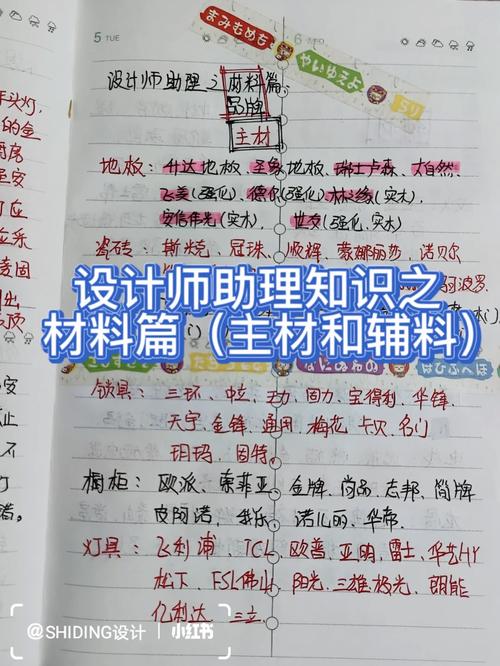 5 TUE
6
まみむめも
やいゆえよ
らり
设计师助理之材料篇：
品牌
主材
地板：升达地板、圣象地板、瑞士卢森、大自然、
飞美(强化)、德尔(强化)、林缘(实木)、
安信伟光(实木)、世友(强化、实木)
瓷砖：斯米克、冠珠、顺辉、蒙娜丽莎、诺贝尔
设计师助理知识之
材料篇（主材和辅料）
はひふへほ
锁具：三环、中立、力、固力、宝得利、华锋、
天宇、金锋、通用、梅花、卡贝、名门
玥玛、固特。
橱柜：欧派、索菲亚、金牌、尚品、志邦、简牌
皮阿诺、我乐、诺儿丽、华帝.
灯具：飞利浦、TCL、欧普、亚明、雷士、华艺HY
松下、FSL佛山、阳光、三雄极光、朗能
亿利达、三立
头灯,
的金
厨房
圣安
应
采
固
出
是
安
止
不
@SHIDING设计 小红书